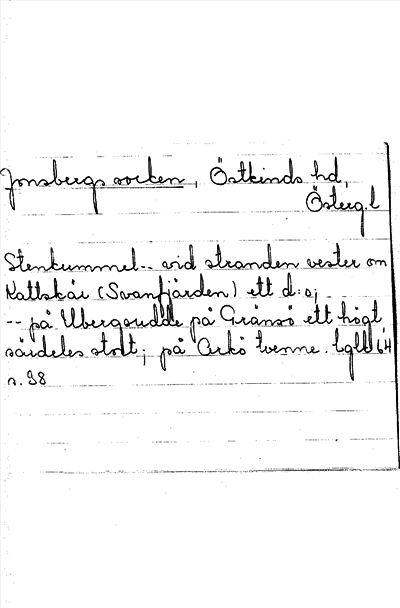 Jonsbergs socken, Östkinds hd,
Österg.l
Stenkummel -- vid stranden vester om
Kattskär (Svanfjärden) ett d:o;
-- på Ubergsudde på Gränsö ett högt,
särdeles stort; på Arkö tvenne.
s. 38